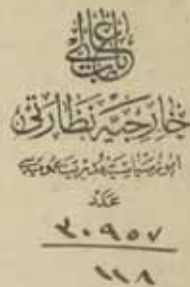 باب عالی
خارجیه نظارتی
امور سیاسیه مدیریت عمومیه‌سی
عدد
٣٠٩٥٧
١١٨